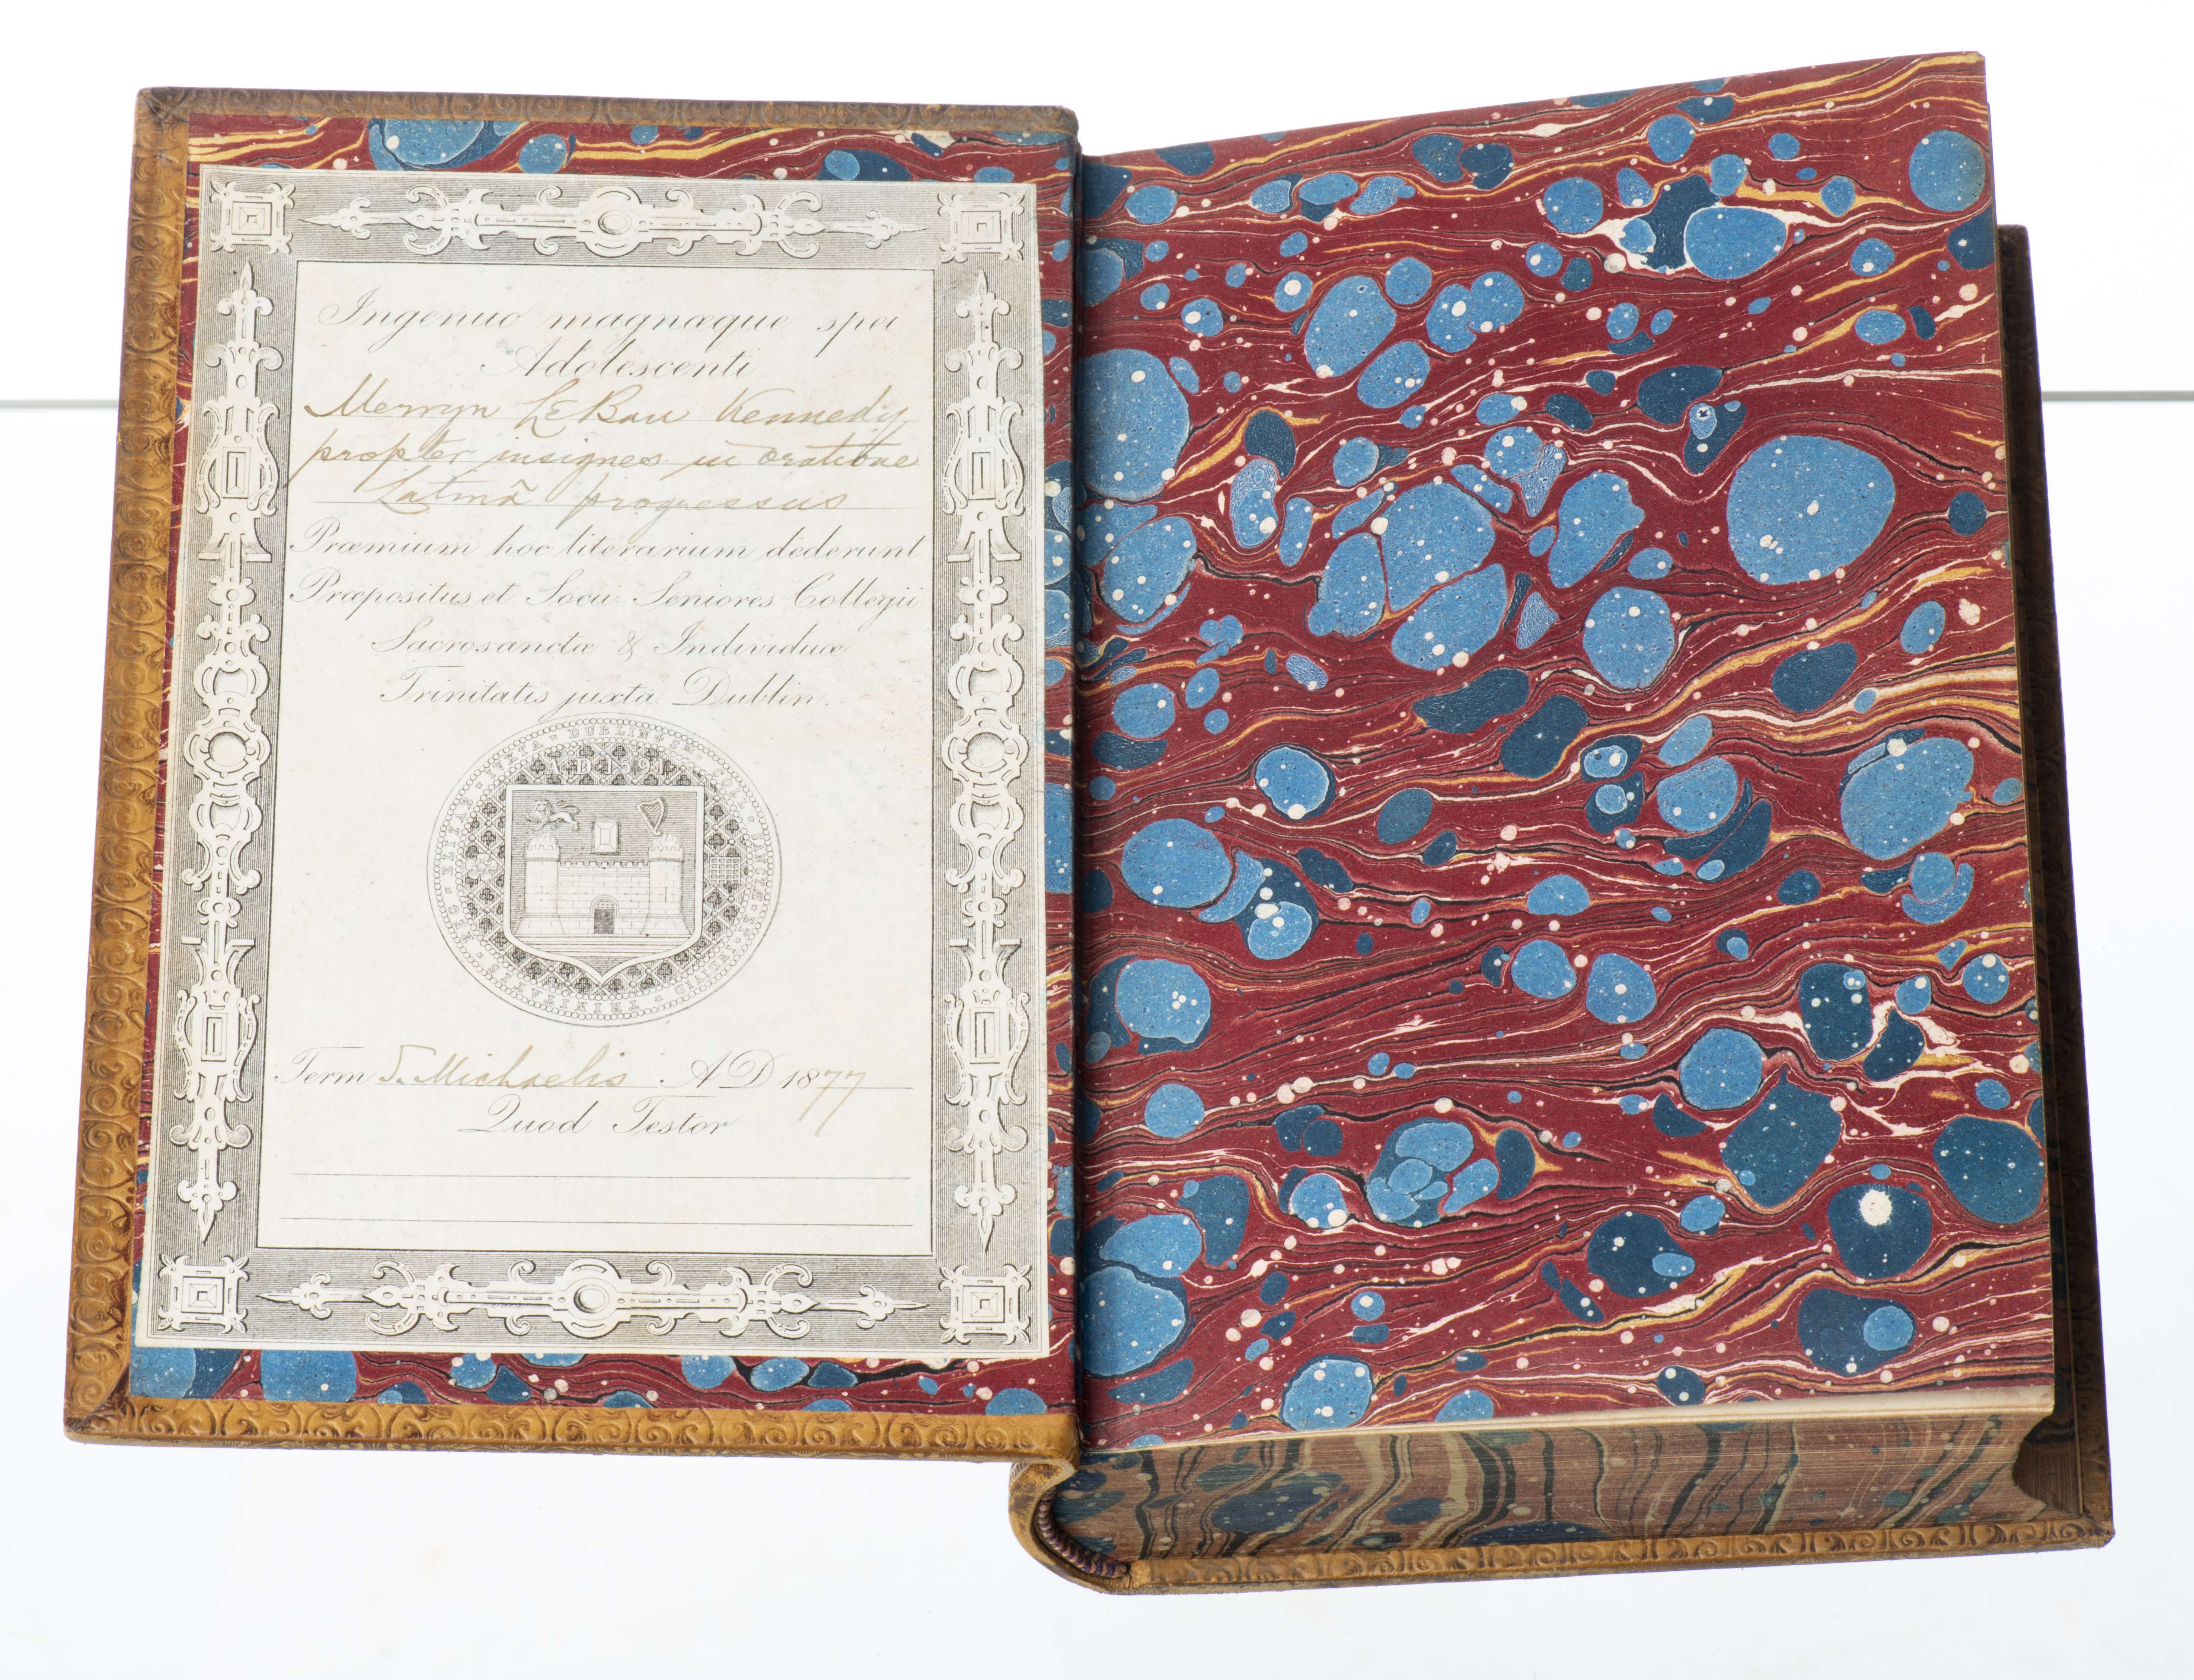 Ingenuo magnæque spei
Adolescenti
Mervyn Le Bau Kennedy
propter insignes in oratione
Latinâ progressus
Præmium hoc literarium dederunt
Præpositus et Socii Seniores Collegii
Sacrosanctæ & Individuæ
Trinitatis juxta Dublin.
A·D·1591
Term S. Michaelis A D 1877
Quod Testor